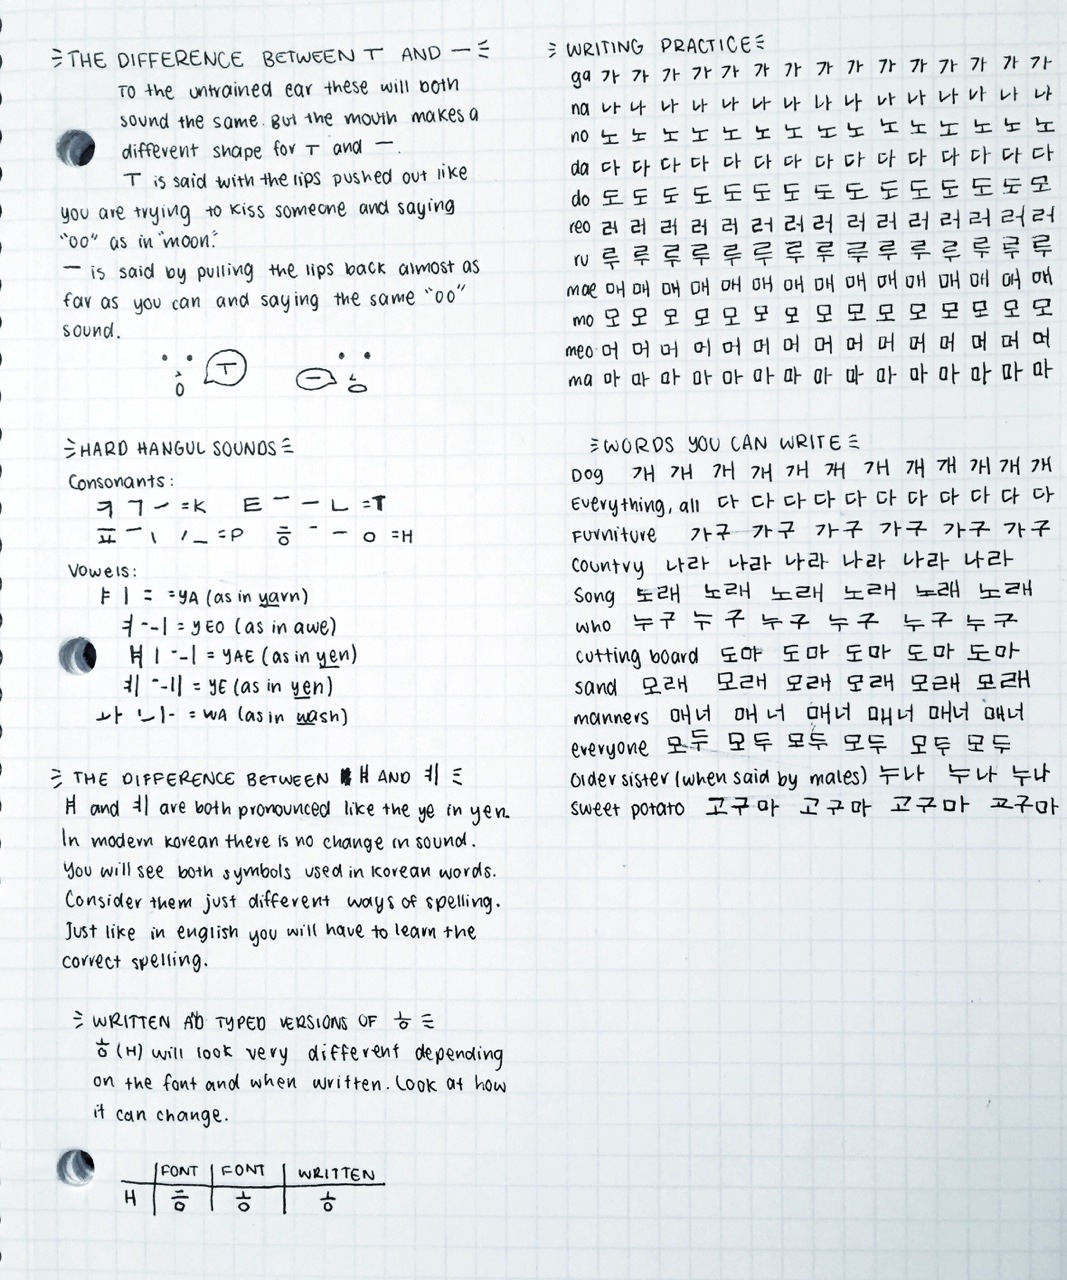 THE DIFFERENCE BETWEEN ㅜ AND ㅡ
To the untrained ear these will both
sound the same. But the mouth makes a
different shape for ㅜ and ㅡ.
ㅜ is said with the lips pushed out like
you are trying to kiss someone and saying
"oo" as in "moon."
ㅡ is said by pulling the lips back almost as
far as you can and saying the same "oo"
sound.
ㅜ ㅡ
HARD HANGUL SOUNDS
Consonants:
ㅋ ㄱ ㅡ =K ㅌ ㅡ ㅡ ㄴ =T
ㅍ ㅡ ㅣ ㅣㅡ =P ㅎ ㅡ ㅡ ㅇ =H
Vowels:
ㅑ ㅣ = =YA (as in yarn)
ㅕ --ㅣ = YEO (as in awe)
ㅒ ㅣ--ㅣ = YAE (as in yen)
ㅖ --ㅣㅣ = YE (as in yen)
ㅘ ㄴㅏ- = WA (as in wash)
THE DIFFERENCE BETWEEN ㅒ AND ㅖ
ㅒ and ㅖ are both pronounced like the ye in yen.
In modern korean there is no change in sound.
You will see both symbols used in korean words.
Consider them just different ways of spelling.
Just like in english you will have to learn the
correct spelling.
WRITTEN AD TYPED VERSIONS OF ㅎ
ㅎ (H) will look very different depending
on the font and when written. Look at how
it can change.
FONT FONT WRITTEN
H ㅎ ㅎ ㅎ
WRITING PRACTICE
ga 가 가 가 가 가 가 가 가 가 가 가 가 가 가 가
na 나 나 나 나 나 나 나 나 나 나 나 나 나 나 나
no 노 노 노 노 노 노 노 노 노 노 노 노 노 노 노
da 다 다 다 다 다 다 다 다 다 다 다 다 다 다 다
do 도 도 도 도 도 도 도 도 도 도 도 도 도 도 모
reo 러 러 러 러 러 러 러 러 러 러 러 러 러 러 러
ru 루 루 루 루 루 루 루 루 루 루 루 루 루 루 루
mae 매 매 매 매 매 매 매 매 매 매 매 매 매 매 매
mo 모 모 모 모 모 모 모 모 모 모 모 모 모 모 모
meo 머 머 머 머 머 머 머 머 머 머 머 머 머 머 머
ma 마 마 마 마 마 마 마 마 마 마 마 마 마 마 마
WORDS YOU CAN WRITE
Dog 개 개 개 개 개 개 개 개 개 개 개 개
Everything, all 다 다 다 다 다 다 다 다 다 다 다
Furniture 가구 가구 가구 가구 가구 가구
Country 나라 나라 나라 나라 나라 나라
Song 노래 노래 노래 노래 노래 노래
who 누구 누구 누구 누구 누구 누구
cutting board 도마 도마 도마 도마 도마
sand 모래 모래 모래 모래 모래 모래
manners 매너 매너 매너 매너 매너 매너
everyone 모두 모두 모두 모두 모두 모두
Older sister (when said by males) 누나 누나 누나
Sweet potato 고구마 고구마 고구마 고구마